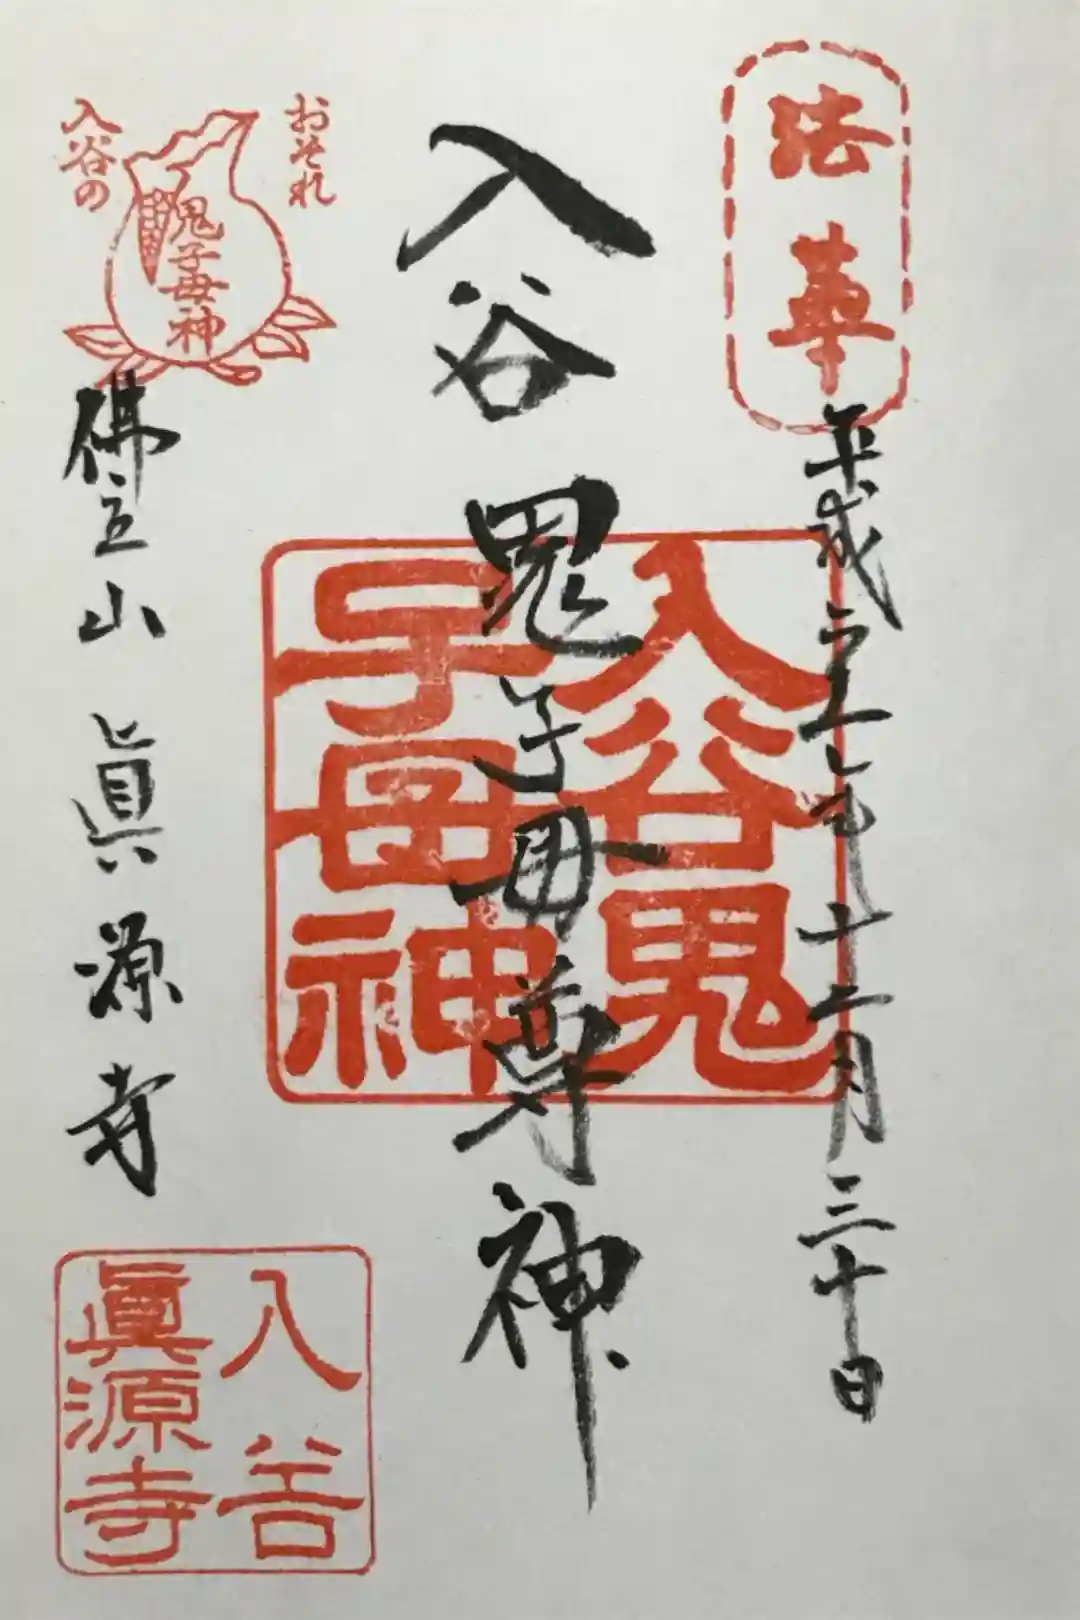 法華
平成二十九年十二月三十日
入谷鬼子母尊神
入谷鬼
子母神
おそれ
入谷の
鬼子母神
佛立山眞源寺
入谷
眞源寺